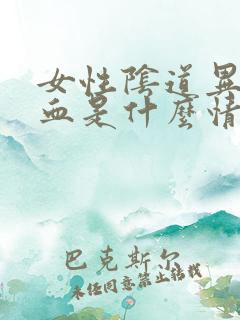 女性陰道異
血是什麼情
巴克斯尔
未经同意禁止转载